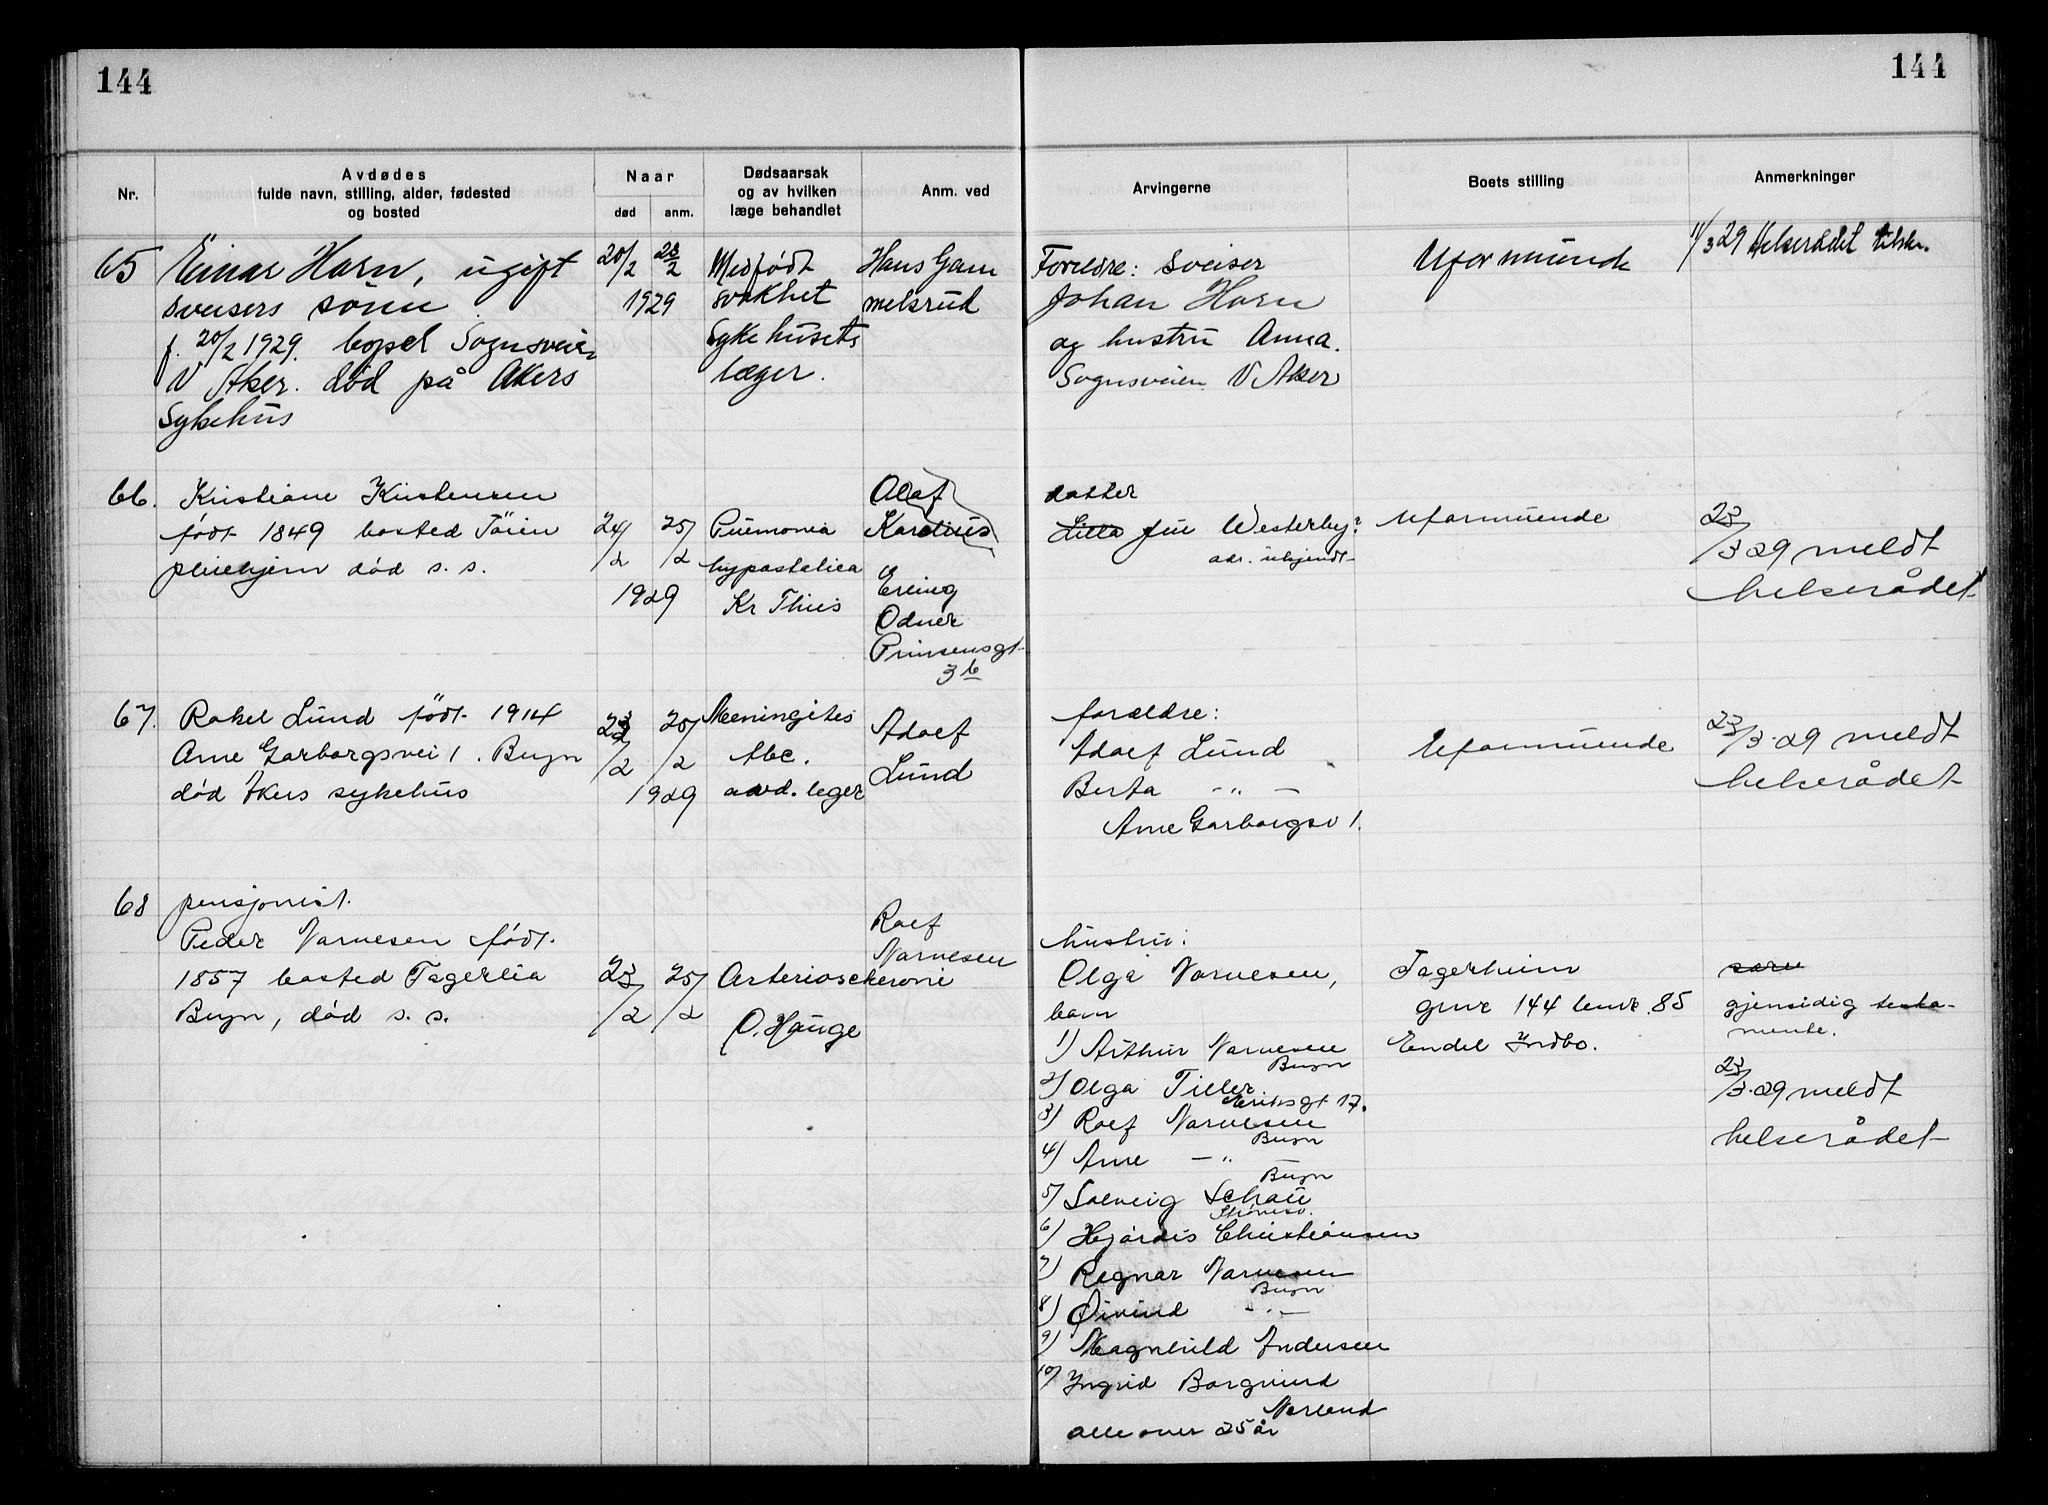 144
144
Nr.
Avdødes
fulde navn, stilling, alder, fødested
og bosted
Naar
død
anm.
Dødsaarsak
og av hvilken
læge behandlet
Anm. ved
Arvingerne
Boets stilling
Anmerkninger
65
Einar Horn, ugift
sveisers sönn
f. 20/2 1929. bopel Sognsveien
V Aker. död på Akers
Sykehus
20/2
28/2
1929
Medfödt
svakhet
Sykehusets
læger.
Hans Gam
melsrud
Foreldre: Sveiser
Johan Horn
og hustru Anna.
Sognsveien V Aker
Uformuende
11/3 29 Helserådet tilskr.
66.
Kristiane Kristensen
født 1849 bosted Töien
pleiehjem død s. s.
24/2
25/2
1929
Pnemonia
hypostatica
Kr Thiis
Olaf
Karelius
Erling
Odner
Prinsensgt
3b
datter
Lilla Westerby?
adr. ukjendt
Uformuende
23/3 29 meldt
helserådet
67.
Rakel Lund födt 1914
Arne Garborgsvei 1. Bryn
død Akers sykehus
23/2
25/2
1929
Meningites
tbc.
avd. leger
Adolf
Lund
forældre:
Adolf Lund
Berta - " -
Arne Garborgsv 1.
Uformuende
23/3.29 meldt
helserådet
68
pensjonist.
Peder Narvesen født.
1857 bosted Fagerlia
Bryn, død s. s.
23/2
25/2
Arteriosclerose
O. Hauge
Rolf
Narvesen
hustru:
Olga Narvesen,
barn
1) Arthur Narvesen
Bryn
2) Olga Tiller
Eriksgt 17.
3) Rolf Narvesen
Bryn
4) Arne - " -
Bryn
5) Solveig Schau
6) Hjördis Christiansen
7) Ragnar Narvesen
Bryn
8) Øivind - " -
9) Magnhild Andersen
10) Ingrid Borgrund
alle over 25 år
Fagerheim
gnr 144 bnr. 85
Endel Indbo.
gjensidig testa-
mente.
23/3.29 meldt
helserådet